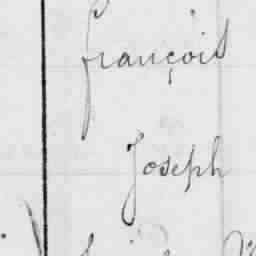 françois
Joseph